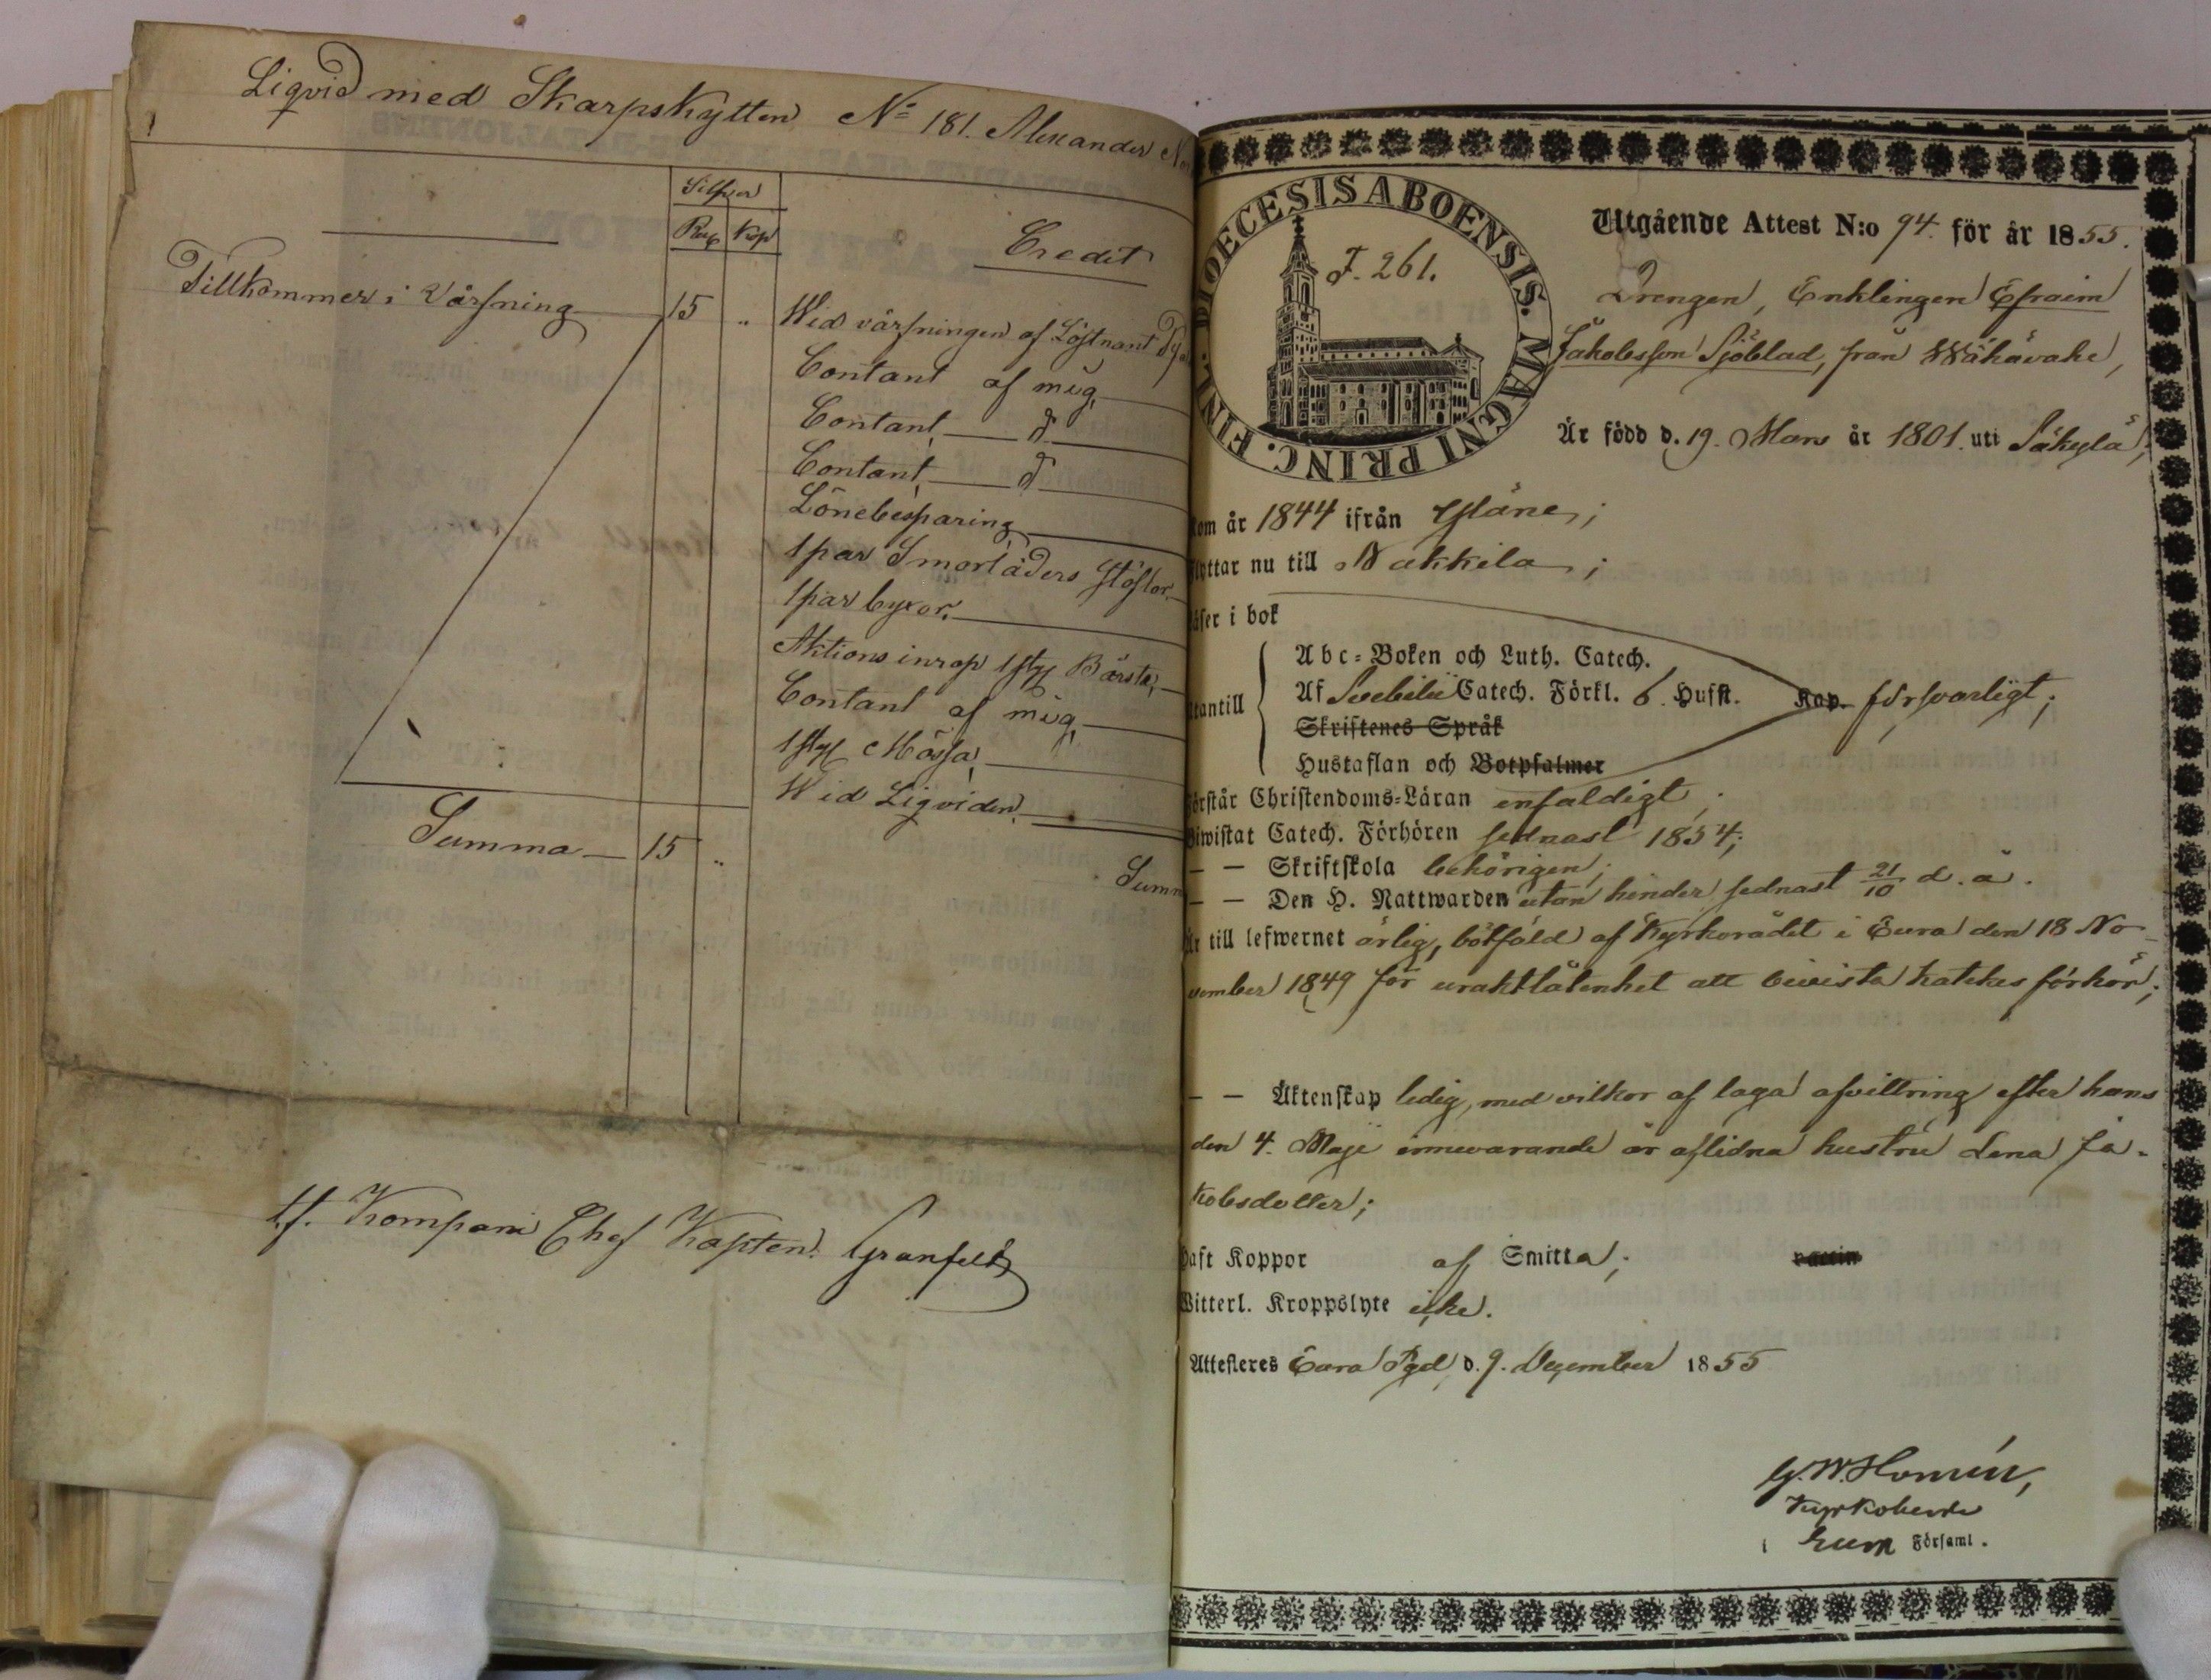 Liqvid med Skarpskytten No 181. Alexander
Silfver
Rub Kop
Credit
Tillkommer i Värfning 15 „
Wid värfningen af Löjtnant
Contant af mig
Contant d
Contant d
Lönebesparing
1 par Smorläders Stöflor
1 par byxor
Aktions inrop 1 sty Bärste
Contant af mig
1 sty Mössa
Wid Liqviden
Summa 15 „
Sum
t.f. Kompani Chef Kapten Granfelt
DIOECESIS ABOENSIS. MAGNI PRINC. FINL.
F. 261.
Utgående Attest N:o 94. för år 1855.
Drengen, Enklingen Efraim
Jakobsson Sjöblad, från Wähävahe,
Är född d. 19. Mars år 1801. uti Säkylä,
om år 1844 ifrån Yläne;
ttar nu till Nakkila;
äser i bok
tantill
Abc-Boken och Luth. Catech.
Af Svebilii Catech. Förkl. 6. Hufst. Kap. försvarligt;
Skriftenes Språk
Hustaflan och Botpsalmer
örstår Christendoms-Läran enfaldigt;
iwistat Catech. Förhören sednast 1854;
— — Skriftskola behörigen;
— — Den H. Nattwarden utan hinder sednast 21/10 d. å.
Är till lefwernet ärlig, bötfäld af Kyrkorådet i Eura den 18 No-
vember 1849 för uraktlåtenhet att bevista katekes förhör;
— — Äktenskap ledig, med vilkor af laga afvittring efter hans
den 4. Maji innevarande år aflidna hustru Lena Ja-
kobsdotter;
Haft Koppor af Smitta; vaccin
Witterl. Kroppslyte icke.
Attesteres Eura Pgd, d. 9. December 1855
G. W. Homén,
Kyrkoherde
i Eura Församl.